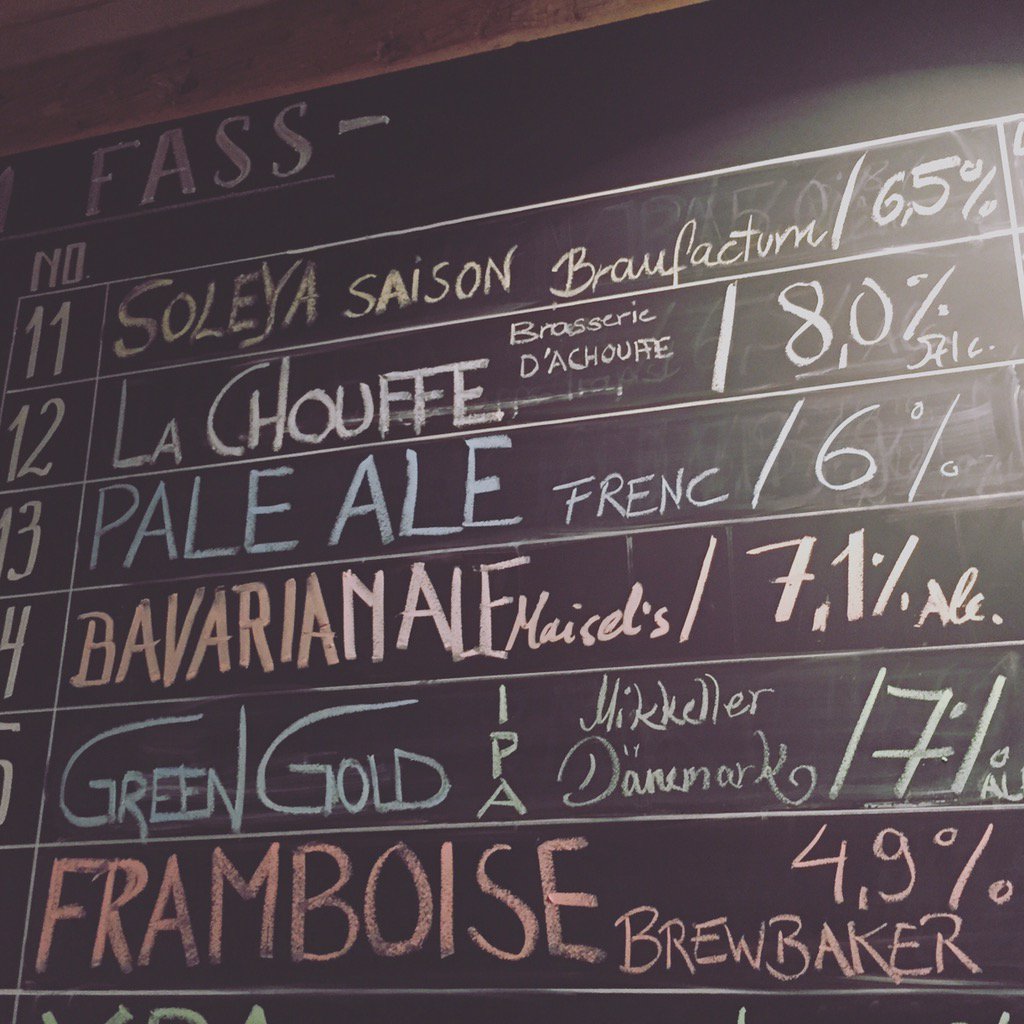 FASS-
NO
11 SOLEYA SAISON Braufactum / 6,5%
12 LA CHOUFFE Brasserie D'ACHOUFFE / 8,0% Alc.
13 PALE ALE FRENC / 6%
4 BAVARIAN ALE Maisel's / 7,1% Alc.
5 GREEN GOLD IPA Mikkeller Dänemark / 7% AL
FRAMBOISE 4,9% BREWBAKER